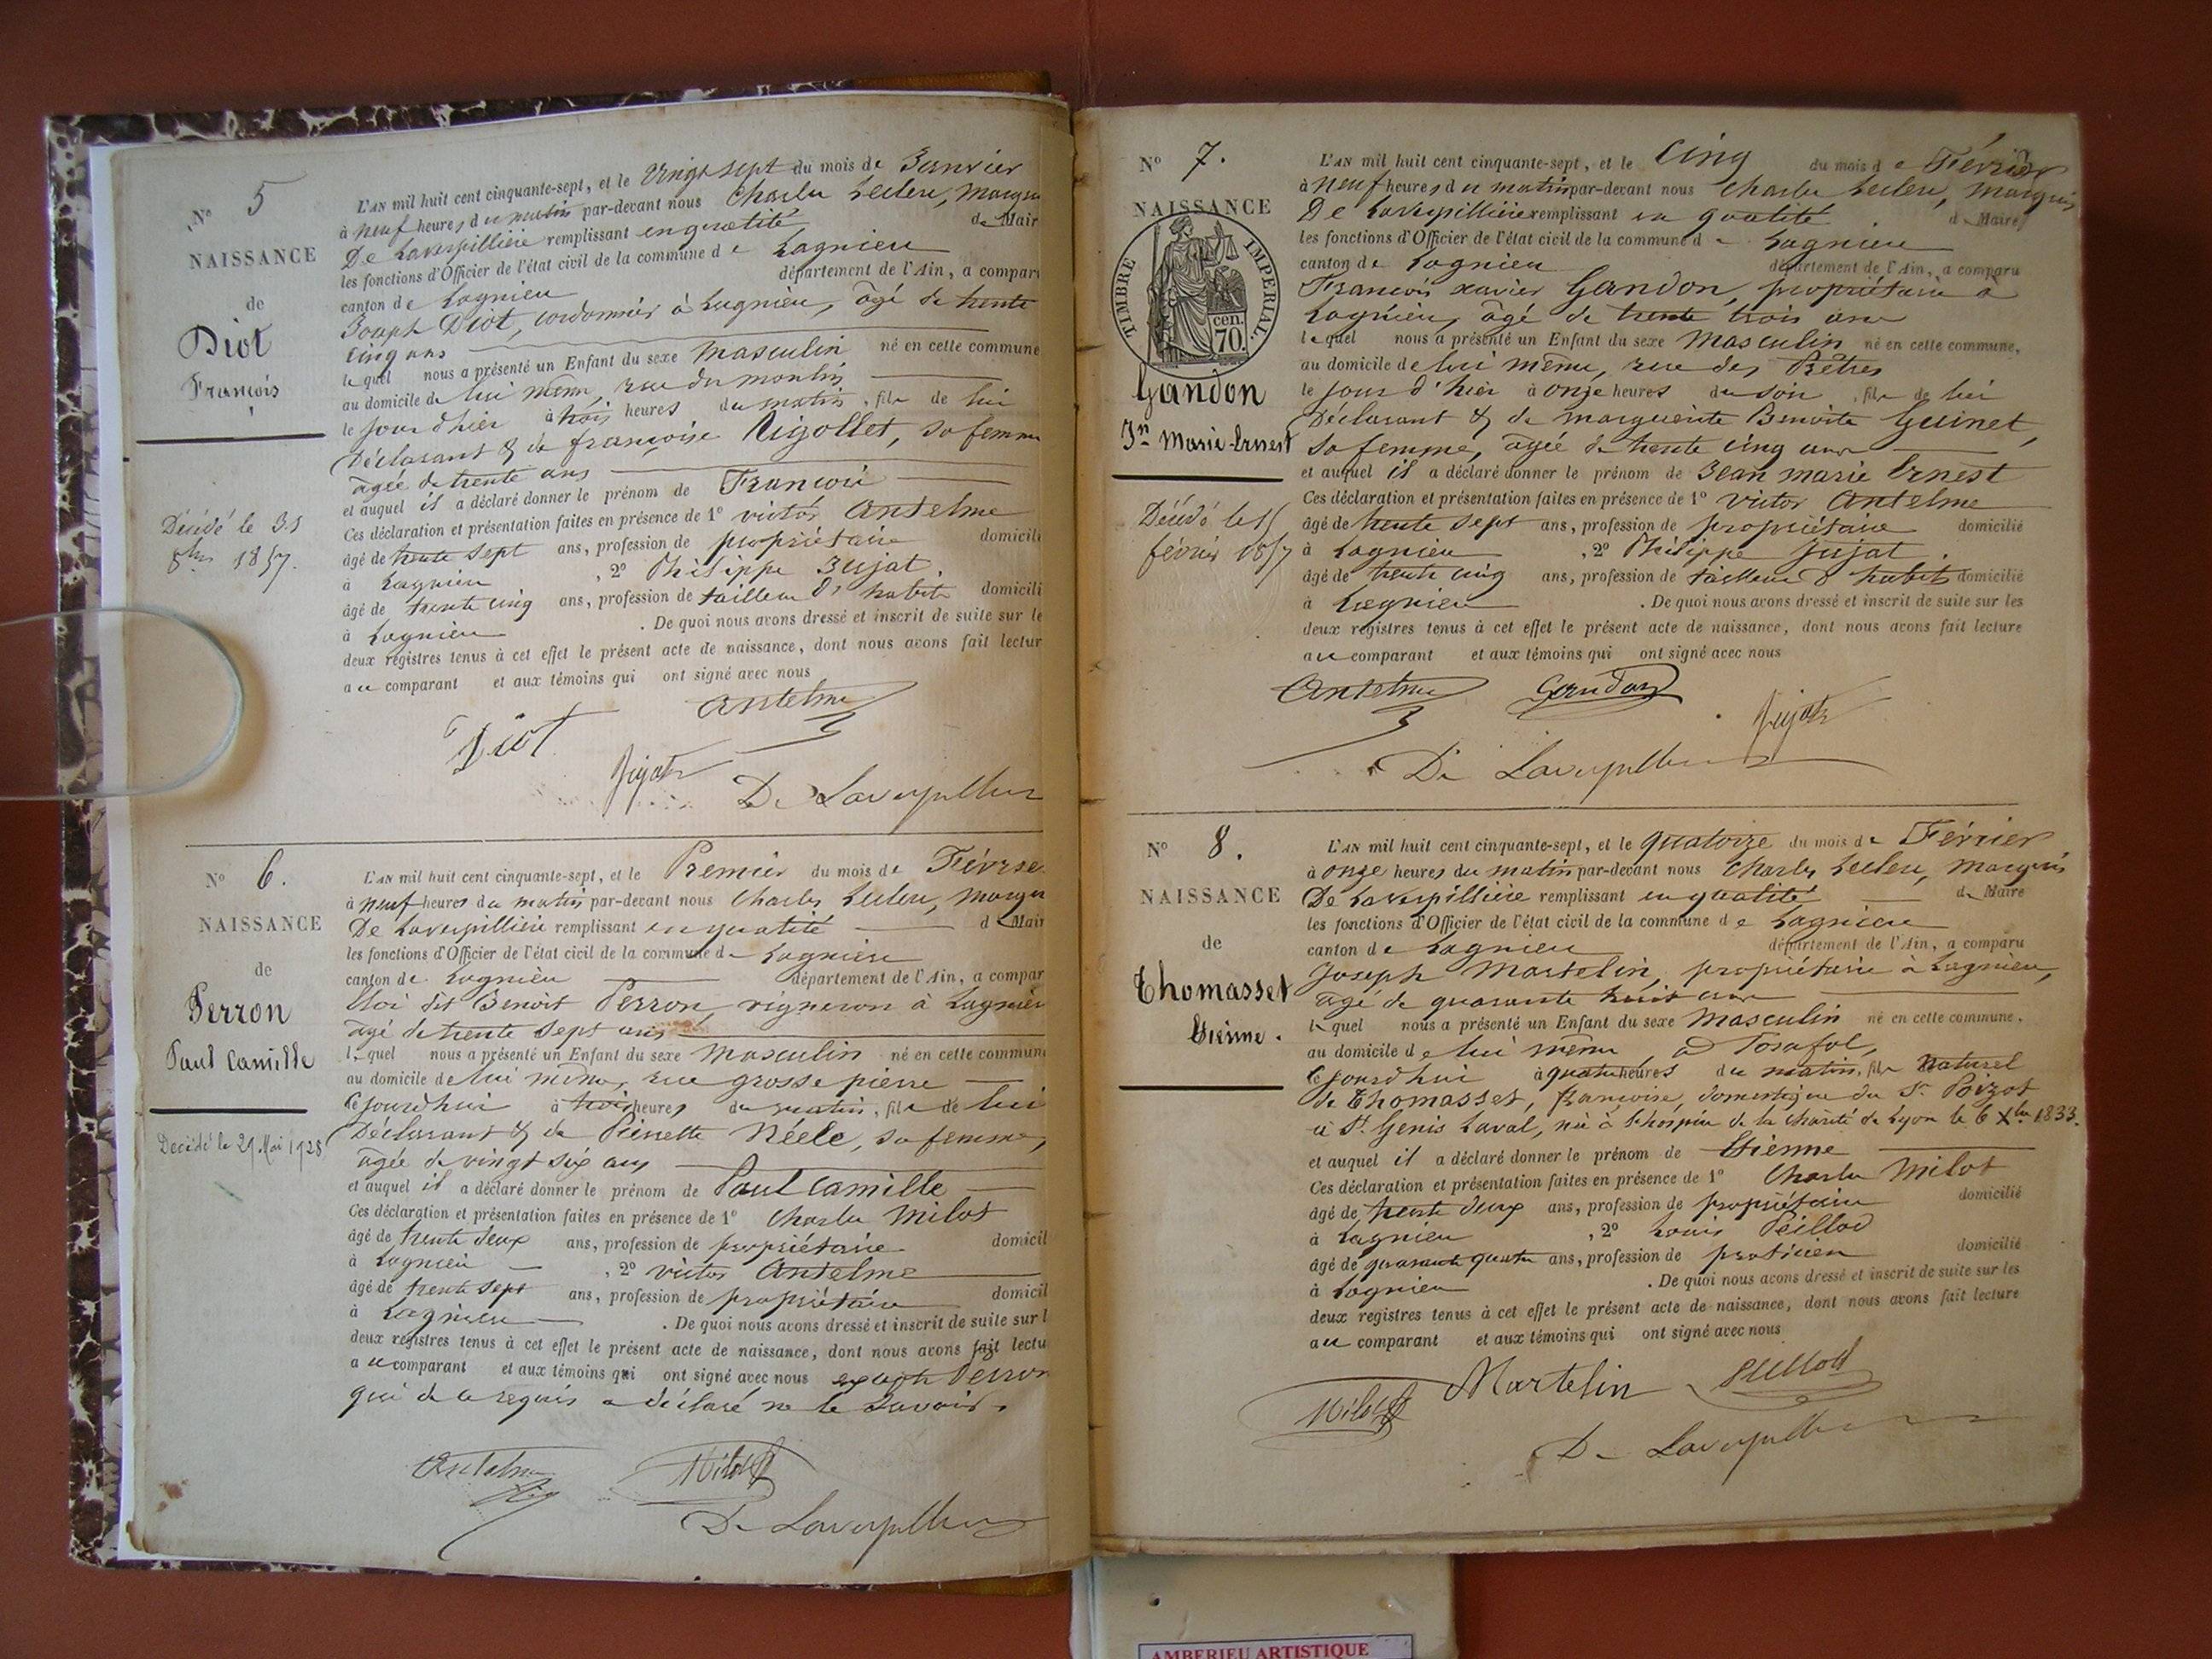 N° 5
NAISSANCE
de
Diot
François
Décédé le 31
8bre 1857.
L'AN mil huit cent cinquante-sept, et le Vingt sept du mois de Janvier
à neuf heures du matin par-devant nous Charles Leclerc, Marquis
De Laverpillière remplissant en qualité de Mair
les fonctions d'Officier de l'état civil de la commune de Lagnieu
canton de Lagnieu département de l'Ain, a compar
Joseph Diot, cordonnier à Lagnieu, âgé de trente
cinq ans
lequel nous a présenté un Enfant du sexe Masculin né en cette commune
au domicile de lui même, rue du moulin
le jour d'hier à trois heures du matin, fils de lui
Déclarant & de françoise Rigollet, sa femme
âgée de trente ans
et auquel il a déclaré donner le prénom de François
Ces déclaration et présentation faites en présence de 1° victor Antelme
âgé de trente sept ans, profession de propriétaire domicili
à Lagnieu, 2° Philippe Jujat.
âgé de trente cinq ans, profession de tailleur d'habits domicili
à Lagnieu. De quoi nous avons dressé et inscrit de suite sur le
deux registres tenus à cet effet le présent acte de naissance, dont nous avons fait lectur
au comparant et aux témoins qui ont signé avec nous
Antelme
Diot
Jujat
De Laverpillière
N° 6.
NAISSANCE
de
Perron
Paul Camille
Décédé le 29 Mai 1928
L'AN mil huit cent cinquante-sept, et le Premier du mois de Février
à neuf heures du matin par-devant nous Charles Leclerc, Marquis
De Laverpillière remplissant en qualité de Mair
les fonctions d'Officier de l'état civil de la commune de Lagnieu
canton de Lagnieu département de l'Ain, a compar
Loi dit Benoit Perron, vigneron à Lagnieu
âgé de trente sept ans
lequel nous a présenté un Enfant du sexe Masculin né en cette commun
au domicile de lui même, rue grosse pierre
Cejourd'hui à trois heures du matin, fils de lui
Déclarant & de Pierrette Néele, sa femme,
âgée de vingt six ans
et auquel il a déclaré donner le prénom de Paul Camille
Ces déclaration et présentation faites en présence de 1° Charles Milot
âgé de trente deux ans, profession de propriétaire domicil
à Lagnieu, 2° victor Antelme
âgé de trente sept ans, profession de propriétaire domicil
à Lagnieu. De quoi nous avons dressé et inscrit de suite sur l
deux registres tenus à cet effet le présent acte de naissance, dont nous avons fait lectu
au comparant et aux témoins qui ont signé avec nous excepté Perron
qui de ce requis a déclaré ne le savoir.
Antelme
Milot
De Laverpillière
N° 7.
NAISSANCE
TIMBRE IMPERIAL.
70 cen.
Gandon
Jn Marie-Ernest
Décédé le 15
février 1857
L'AN mil huit cent cinquante-sept, et le Cinq du mois de Février
à neuf heures du matin par-devant nous Charles Leclerc, Marquis
De Laverpillière remplissant en qualité de Maire
les fonctions d'Officier de l'état civil de la commune de Lagnieu
canton de Lagnieu département de l'Ain, a comparu
François xavier Gandon, propriétaire à
Lagnieu, âgé de trente trois ans
lequel nous a présenté un Enfant du sexe Masculin né en cette commune,
au domicile de lui même, rue des Prêtres
le jour d'hier à onze heures du soir, fils de lui
Déclarant & de marguerite Benoite Guinet,
sa femme, âgée de trente cinq ans
et auquel il a déclaré donner le prénom de Jean marie Ernest
Ces déclaration et présentation faites en présence de 1° Victor Antelme
âgé de trente sept ans, profession de propriétaire domicilié
à Lagnieu, 2° Philippe Jujat.
âgé de trente cinq ans, profession de tailleur d'habits domicilié
à Lagnieu. De quoi nous avons dressé et inscrit de suite sur les
deux registres tenus à cet effet le présent acte de naissance, dont nous avons fait lecture
au comparant et aux témoins qui ont signé avec nous
Antelme Gandon
Jujat
De Laverpillière
N° 8.
NAISSANCE
de
Thomasset
Etienne.
L'AN mil huit cent cinquante-sept, et le quatorze du mois de Février
à onze heures du matin par-devant nous Charles Leclerc, Marquis
De Laverpillière remplissant en qualité de Maire
les fonctions d'Officier de l'état civil de la commune de Lagnieu
canton de Lagnieu département de l'Ain, a comparu
Joseph Martelin, propriétaire à Lagnieu,
âgé de quarante huit ans
lequel nous a présenté un Enfant du sexe Masculin né en cette commune.
au domicile de lui même, à Posafol,
Cejourd'hui à quatre heures du matin, fils Naturel
de Thomasset, françoise, domestique du Sr Poizot
à St Genis Laval, née à l'hospice de la charité de Lyon le 6 Xbre 1833.
et auquel il a déclaré donner le prénom de Etienne
Ces déclaration et présentation faites en présence de 1° Charles Milot
âgé de trente deux ans, profession de propriétaire domicilié
à Lagnieu, 2° Louis Peillod
âgé de quarante quatre ans, profession de praticien domicilié
à Lagnieu. De quoi nous avons dressé et inscrit de suite sur les
deux registres tenus à cet effet le présent acte de naissance, dont nous avons fait lecture
au comparant et aux témoins qui ont signé avec nous
Milot Martelin Peillod
De Laverpillière
AMBERIEU ARTISTIQUE